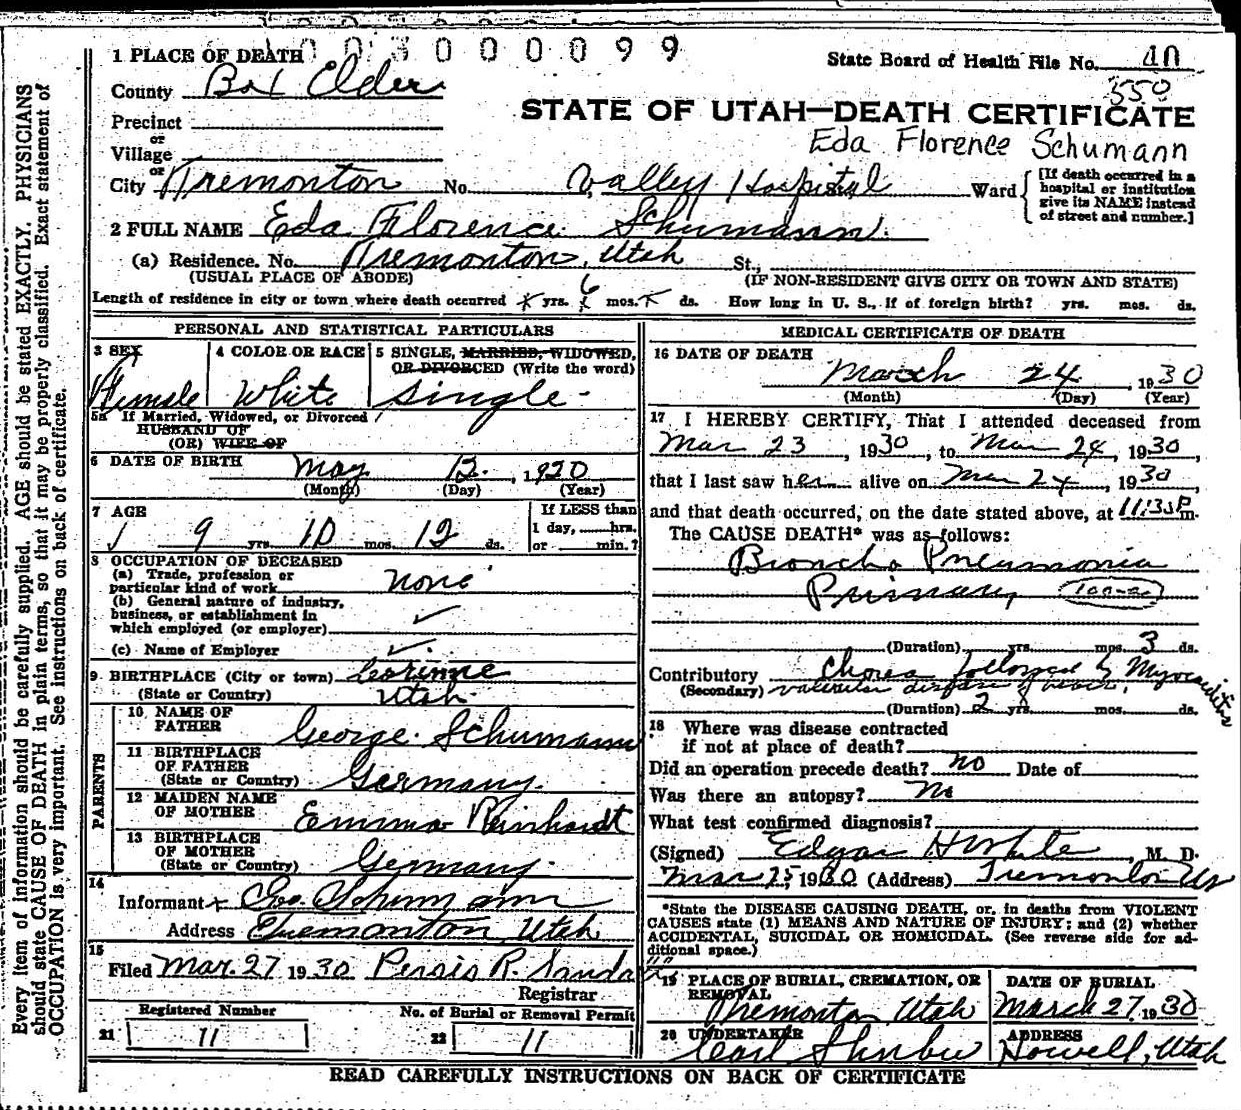 003000099
1 PLACE OF DEATH
State Board of Health File No. 40
550
County Box Elder
STATE OF UTAH—DEATH CERTIFICATE
Precinct
or
Village
Eda Florence Schumann
or
City Tremonton No. Valley Hospital Ward
[If death occurred in a hospital or institution give its NAME instead of street and number.]
2 FULL NAME Eda Florence Schumann.
(a) Residence. No. Tremonton, Utah St.,
(USUAL PLACE OF ABODE) (IF NON-RESIDENT GIVE CITY OR TOWN AND STATE)
Length of residence in city or town where death occurred yrs. 6 mos. ds. How long in U. S., if of foreign birth? yrs. mos. ds.
PERSONAL AND STATISTICAL PARTICULARS
3 SEX 4 COLOR OR RACE 5 SINGLE, MARRIED, WIDOWED,
OR DIVORCED (Write the word)
Female White Single
5a If Married, Widowed, or Divorced
HUSBAND OF
(OR) WIFE OF
6 DATE OF BIRTH May 12, 1920
(Month) (Day) (Year)
7 AGE
If LESS than
1 day, hrs.
9 yrs. 10 mos. 12 ds. or min.?
8 OCCUPATION OF DECEASED
(a) Trade, profession or
particular kind of work none
(b) General nature of industry,
business, or establishment in
which employed (or employer) ✓
(c) Name of Employer ✓
9 BIRTHPLACE (City or town) Corinne
(State or Country) Utah
PARENTS
10 NAME OF
FATHER George Schumann
11 BIRTHPLACE
OF FATHER
(State or Country) Germany
12 MAIDEN NAME
OF MOTHER Emma Reinhardt
13 BIRTHPLACE
OF MOTHER
(State or Country) Germany
14
Informant Geo. Schumann
Address Tremonton, Utah
15
Filed Mar. 27 1930 Persis R. Sanda
Registrar
Registered Number No. of Burial or Removal Permit
21 11 22 11
MEDICAL CERTIFICATE OF DEATH
16 DATE OF DEATH
March 24, 1930
(Month) (Day) (Year)
17 I HEREBY CERTIFY, That I attended deceased from
Mar 23, 1930, to Mar 24, 1930,
that I last saw her alive on Mar 24, 1930,
and that death occurred, on the date stated above, at 11:35P m.
The CAUSE DEATH* was as follows:
Broncho Pneumonia
Primary
(Duration) yrs. mos. 3 ds.
Contributory Chorea followed by Myocarditis
(Secondary) valvular disease of
(Duration) 2 yrs. mos. ds.
18 Where was disease contracted
if not at place of death?
Did an operation precede death? no Date of
Was there an autopsy? No
What test confirmed diagnosis?
(Signed) Edgar H White, M. D.
Mar 25, 1930 (Address) Tremonton Ut
*State the DISEASE CAUSING DEATH, or, in deaths from VIOLENT
CAUSES state (1) MEANS AND NATURE OF INJURY; and (2) whether
ACCIDENTAL, SUICIDAL OR HOMICIDAL. (See reverse side for ad-
ditional space.)
19 PLACE OF BURIAL, CREMATION, OR REMOVAL DATE OF BURIAL
Tremonton Utah March 27, 1930
20 UNDERTAKER ADDRESS
Carl Howell, Utah
READ CAREFULLY INSTRUCTIONS ON BACK OF CERTIFICATE
Every item of information should be carefully supplied. AGE should be stated EXACTLY. PHYSICIANS
should state CAUSE OF DEATH in plain terms, so that it may be properly classified. Exact statement of
OCCUPATION is very important. See instructions on back of certificate.